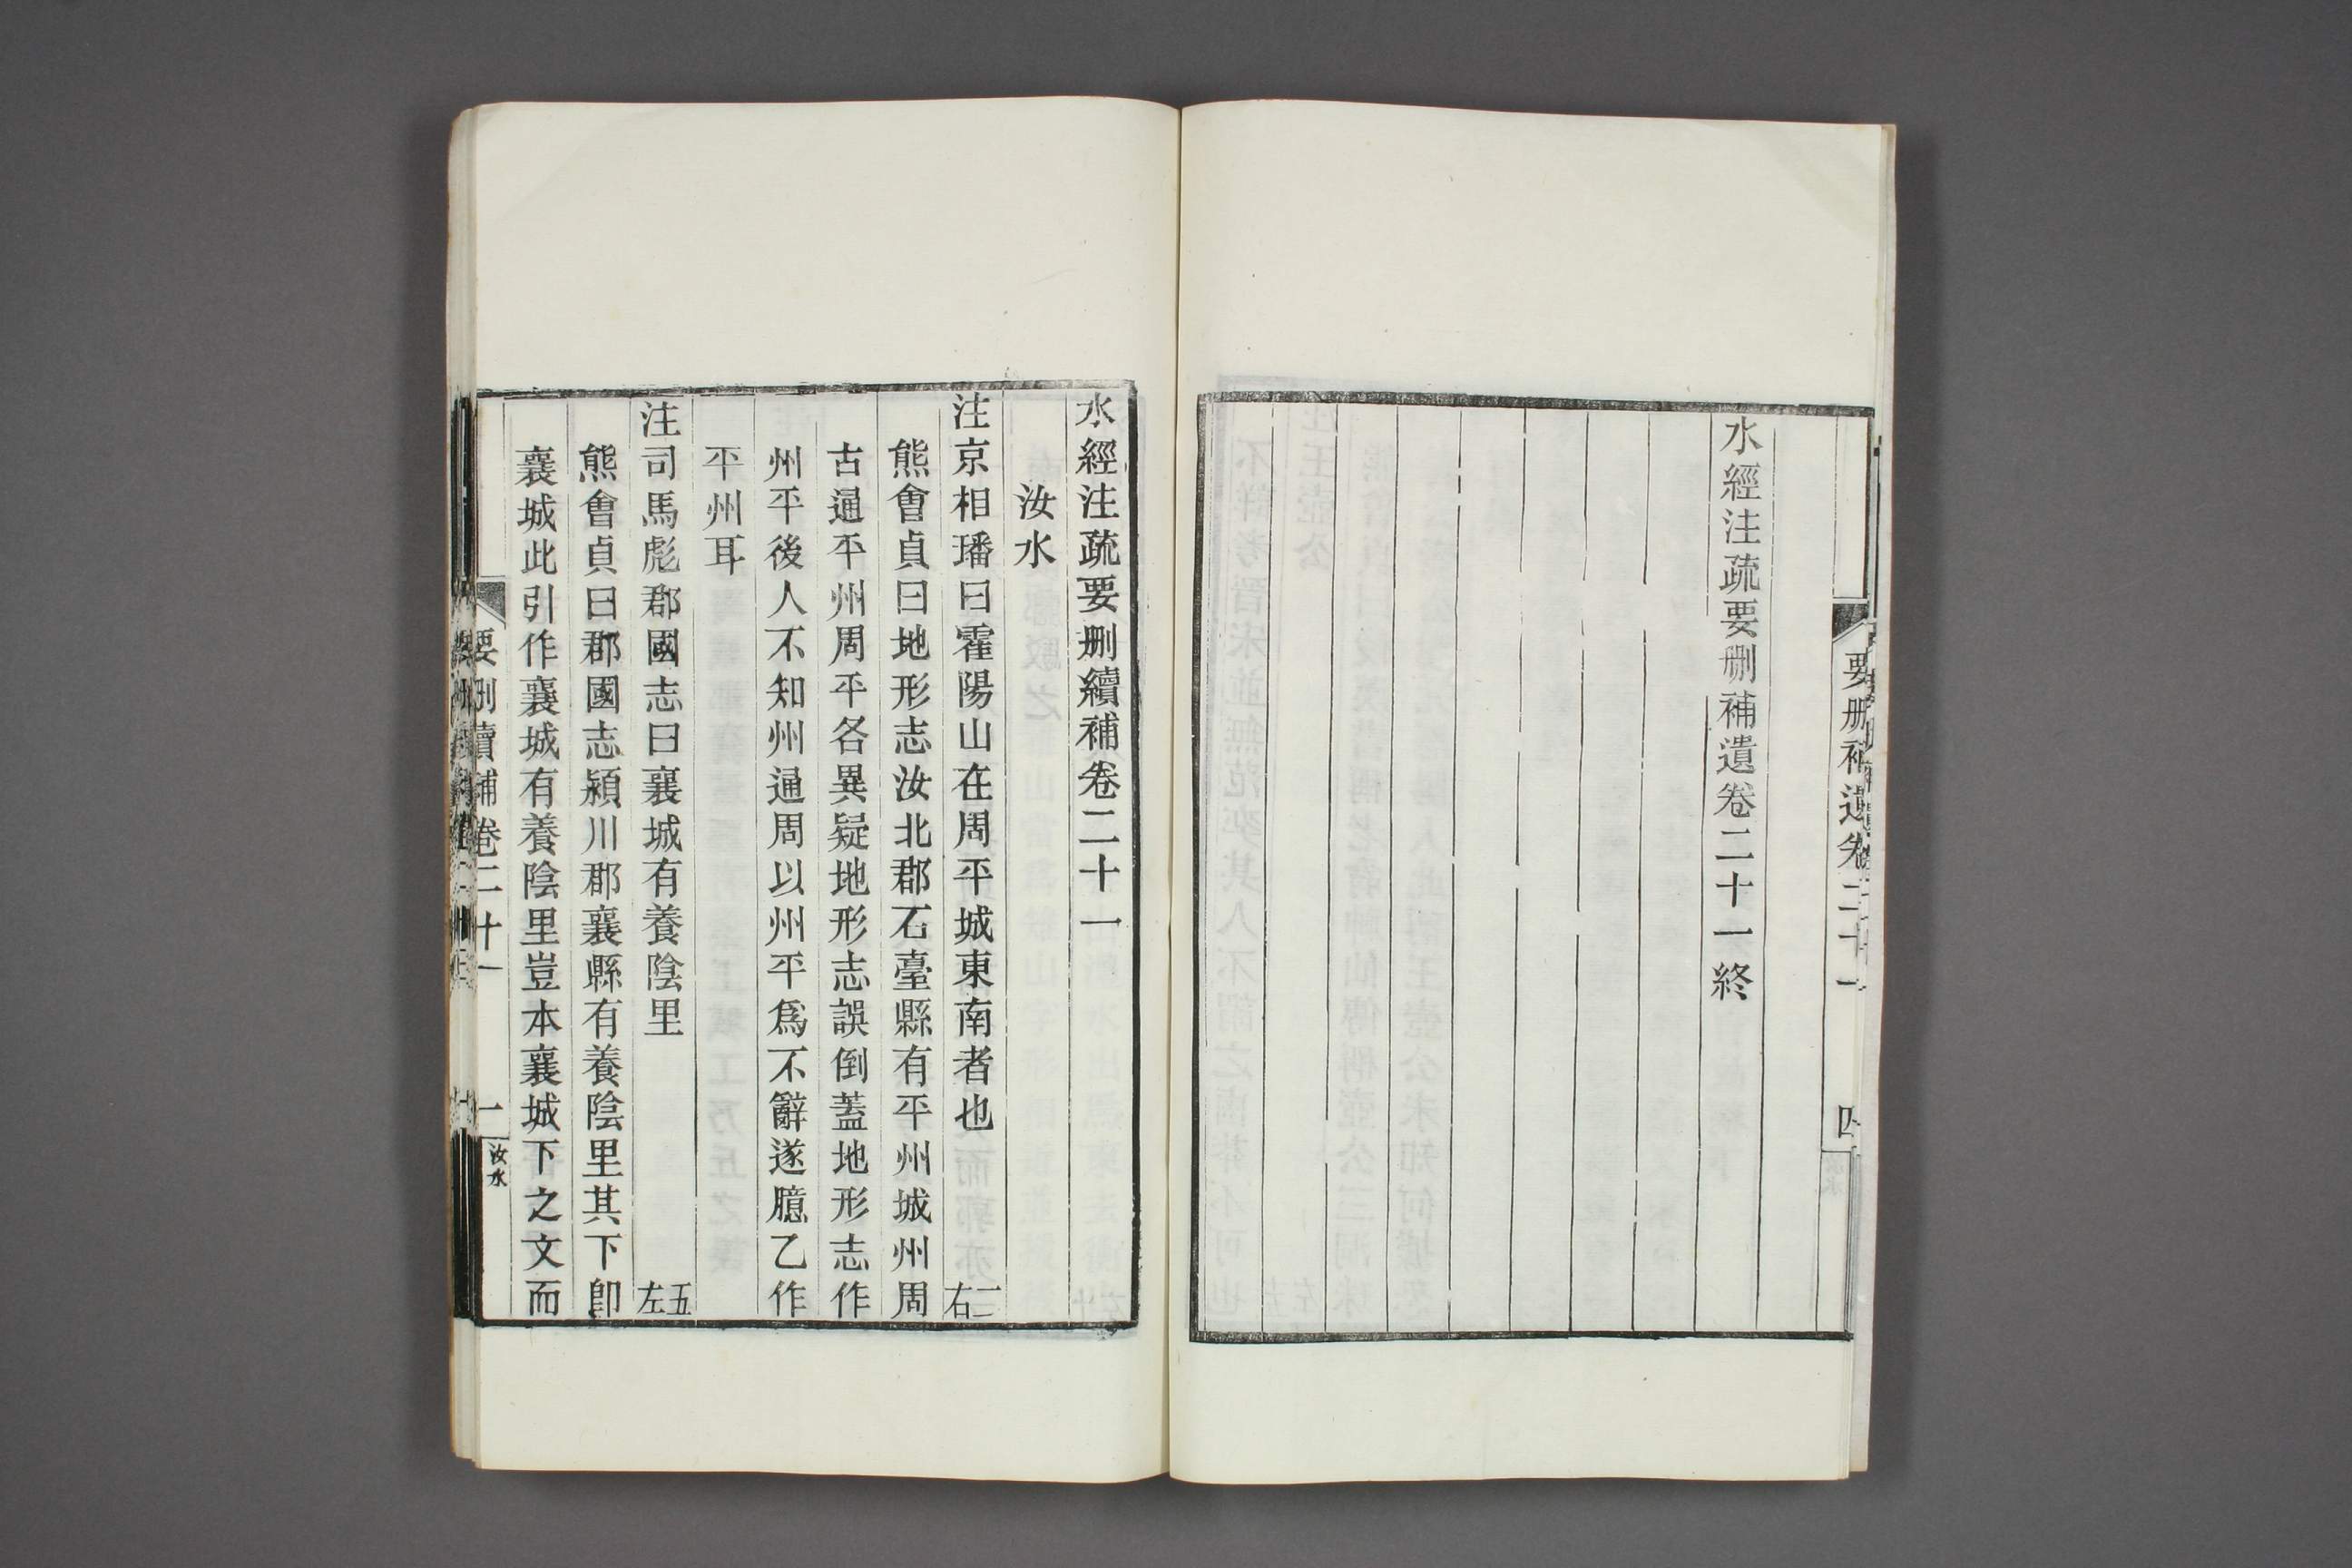 水經注疏要刪補遺卷二十一終
要刪補遺卷二十一
四
水經注疏要刪續補卷二十一
汝水
注京相璠曰霍陽山在周平城東南者也 二右
熊會貞曰地形志汝北郡石臺縣有平州城州周
古通平州周平各異疑地形志誤倒蓋地形志作
州平後人不知州通周以州平爲不辭遂臆乙作
平州耳
注司馬彪郡國志曰襄城有養陰里 五左
熊會貞曰郡國志潁川郡襄縣有養陰里其下卽
襄城此引作襄城有養陰里豈本襄城下之文而
要刪續補卷二十一
一
汝水